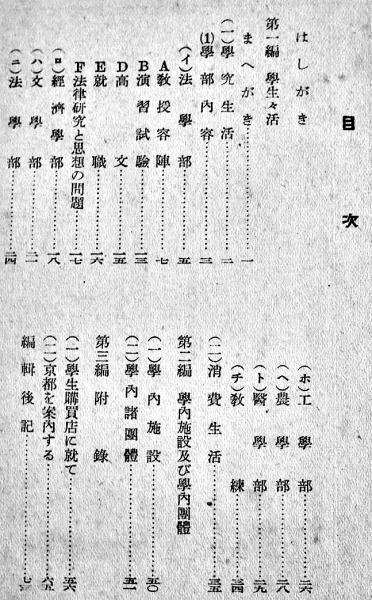 目次
はしがき
第一編 學生々活
まへがき……一
(一)學究生活……二
(1)學部內容……三
(イ)法學部……五
A教授容陣……七
B演習試驗……一三
D高文……一五
E就職……一六
F法律研究と思想の問題……一七
(ロ)經濟學部……一八
(ハ)文學部……二一
(ニ)法學部……二四
(ホ)工學部……二六
(ヘ)農學部……二八
(ト)醫學部……二九
(チ)教練……三四
(二)消費生活……三五
第二編 學內施設及び學內團體
(一)學內施設……五〇
(二)學內諸團體……五一
第三編 附錄
(一)學生購買店に就て……五六
(二)京都を案內する……六五
編輯後記……七